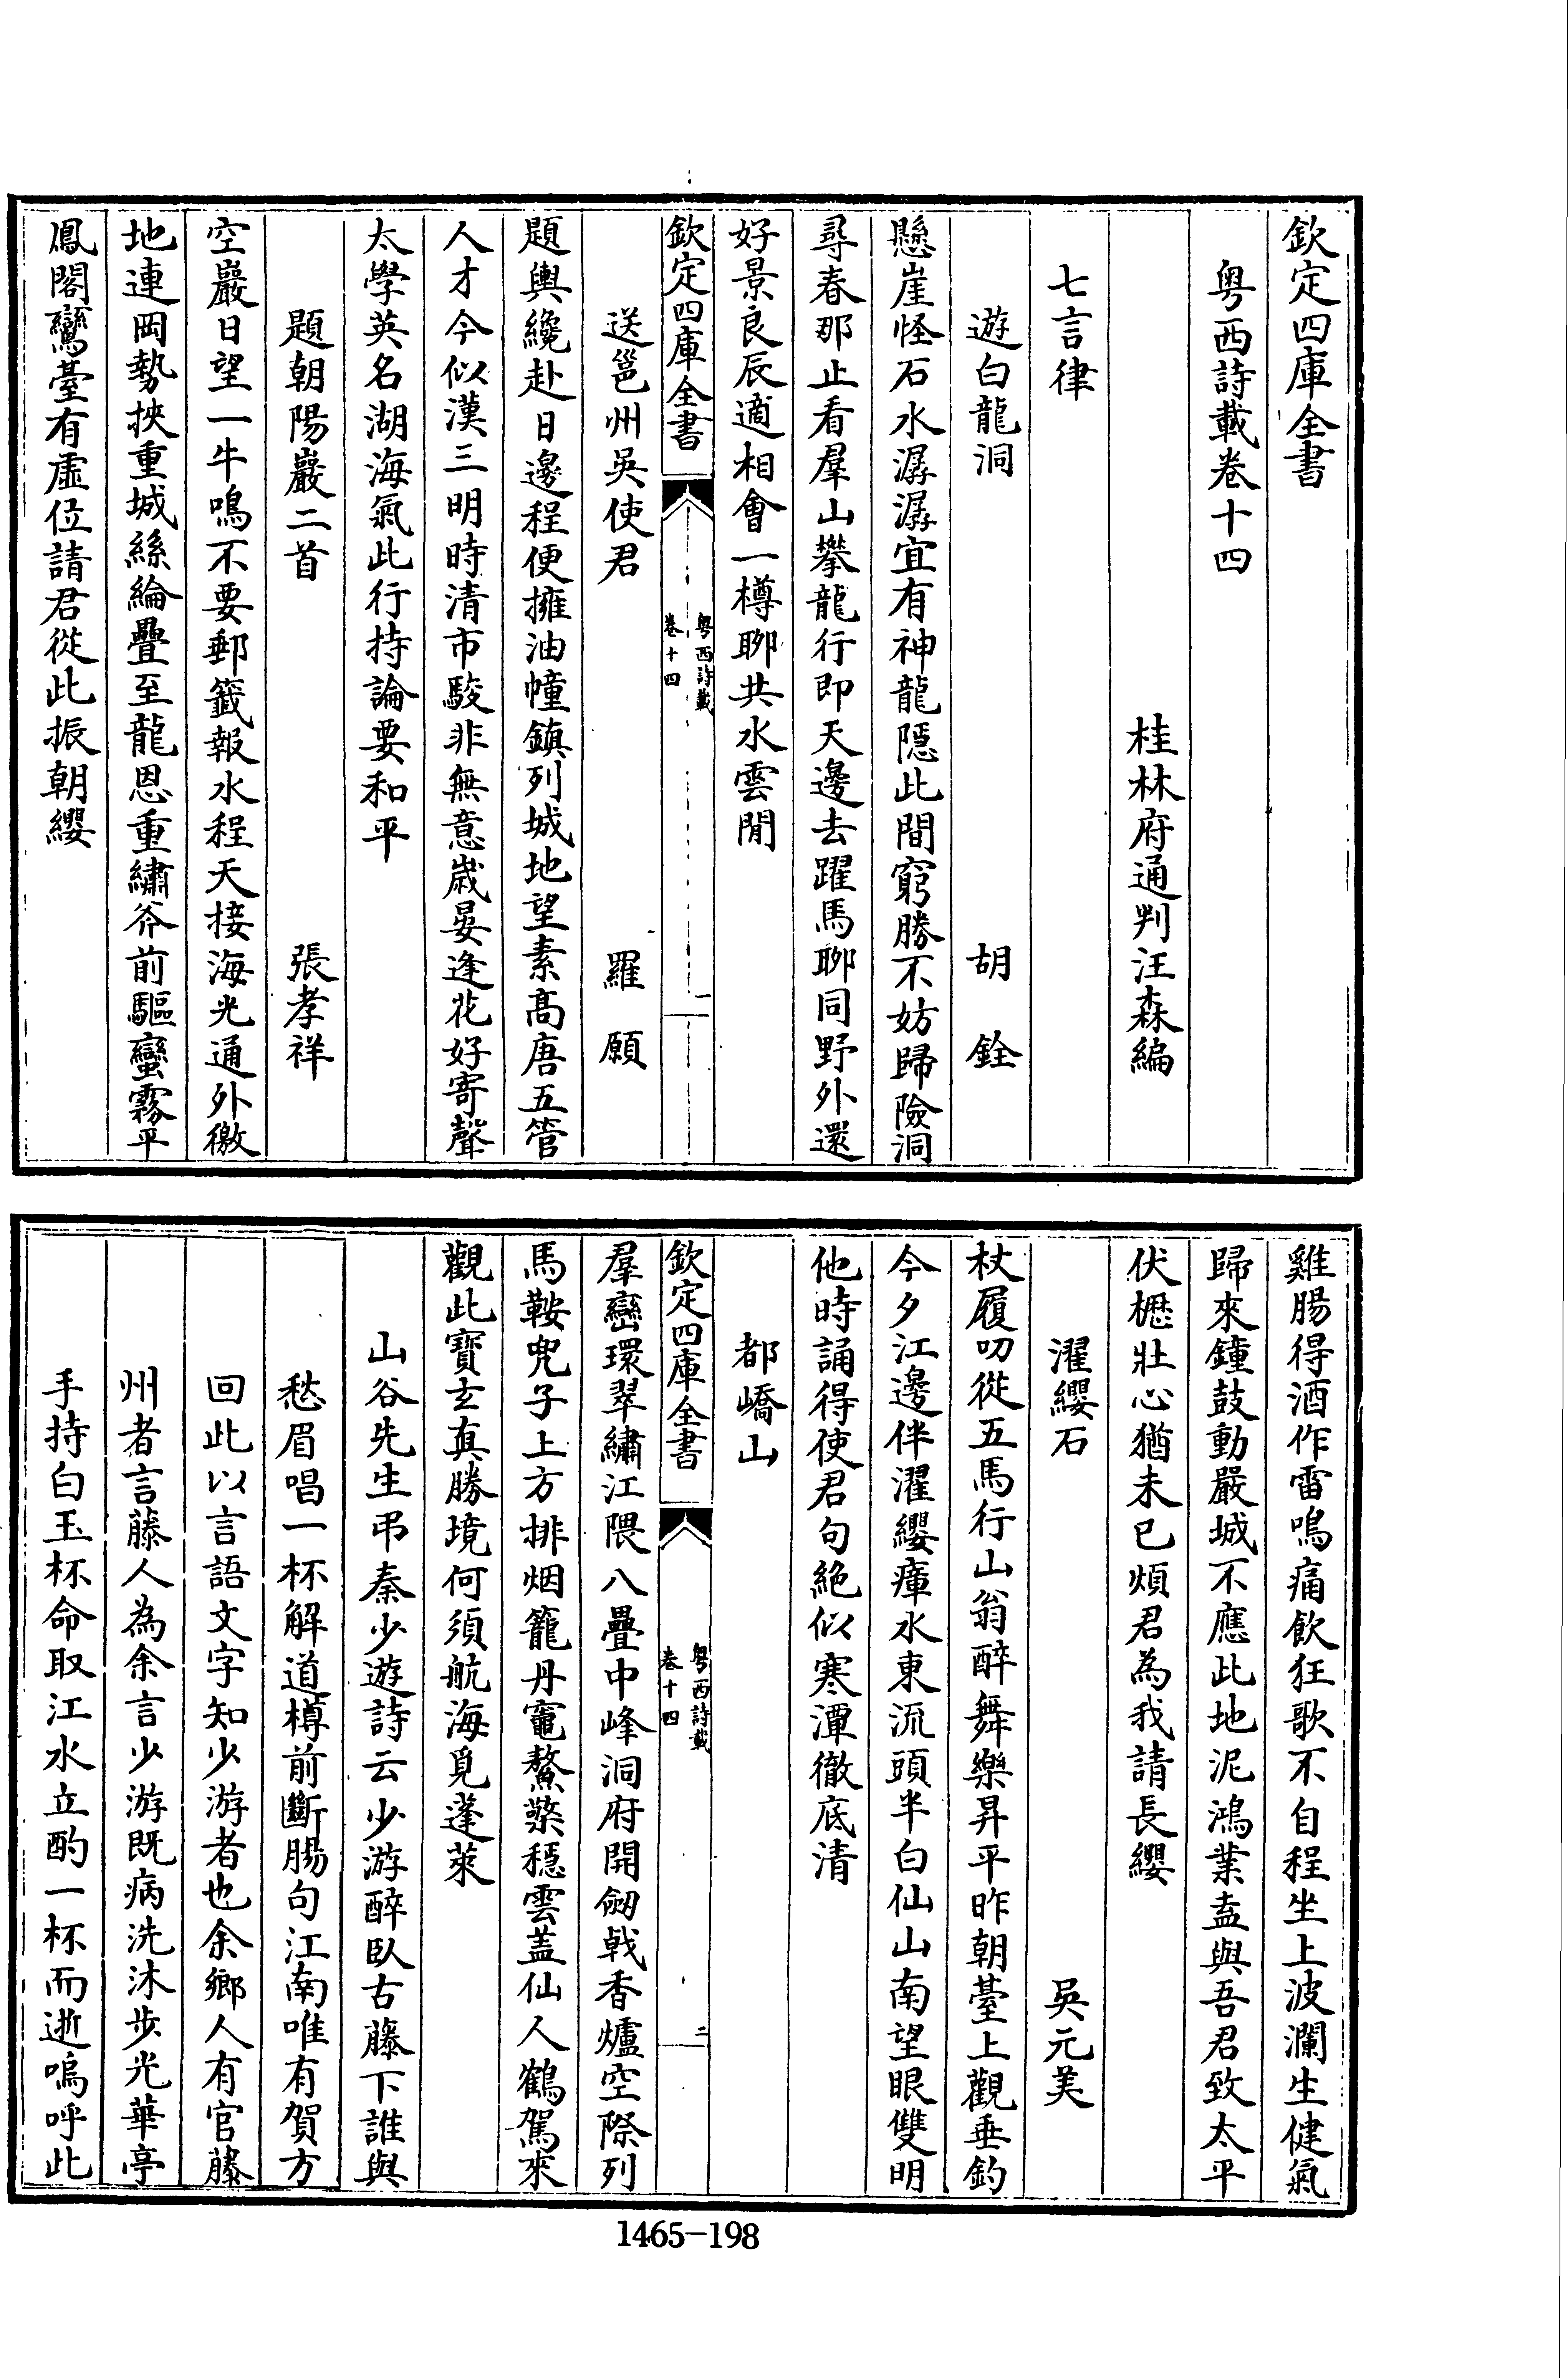 欽定四庫全書
粵西詩載卷十四
桂林府通判汪森編
七言律
遊白龍洞　胡　銓
懸崖怪石水潺潺宜有神龍隱此間窮勝不妨歸險洞
尋春那止看羣山攀龍行即天邊去躍馬聊同野外還
好景良辰適相會一樽聊共水雲閒
欽定四庫全書
粵西詩載
卷十四
一
送邕州吳使君　羅　願
題輿纔赴日邊程便擁油幢鎮列城地望素髙唐五管
人才今似漢三明時清市駿非無意歲晏逢花好寄聲
太學英名湖海氣此行持論要和平
題朝陽巖二首　張孝祥
空巖日望一牛鳴不要郵籤報水程天接海光通外徼
地連岡勢挾重城絲綸疊至龍恩重繡斧前驅蠻霧平
鳳閣鸞臺有虛位請君從此振朝纓
雞腸得酒作雷鳴痛飲狂歌不自程坐上波瀾生健氣
歸來鐘鼓動嚴城不應此地泥鴻業盍與吾君致太平
伏櫪壯心猶未已煩君為我請長纓
濯纓石　吳元美
杖履叨從五馬行山翁醉舞樂昇平昨朝臺上觀垂釣
今夕江邊伴濯纓瘴水東流頭半白仙山南望眼雙明
他時誦得使君句絶似寒潭徹底清
都嶠山
欽定四庫全書
粵西詩載
卷十四
二
羣巒環翠繡江隈八疊中峰洞府開劒戟香爐空際列
馬鞍兜子上方排烟籠丹竈鰲檠穩雲蓋仙人鶴駕來
觀此寶玄真勝境何須航海覓蓬萊
山谷先生弔秦少遊詩云少游醉臥古藤下誰與
愁眉唱一杯解道樽前斷腸句江南唯有賀方
回此以言語文字知少游者也余鄉人有官藤
州者言藤人為余言少游既病洗沐步光華亭
手持白玉杯命取江水立酌一杯而逝嗚呼此
1465-198